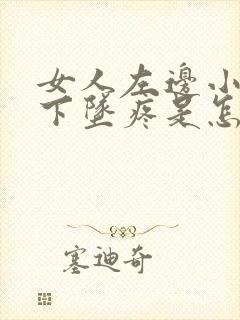 女人左邊小
下墜疼是怎
塞迪奇